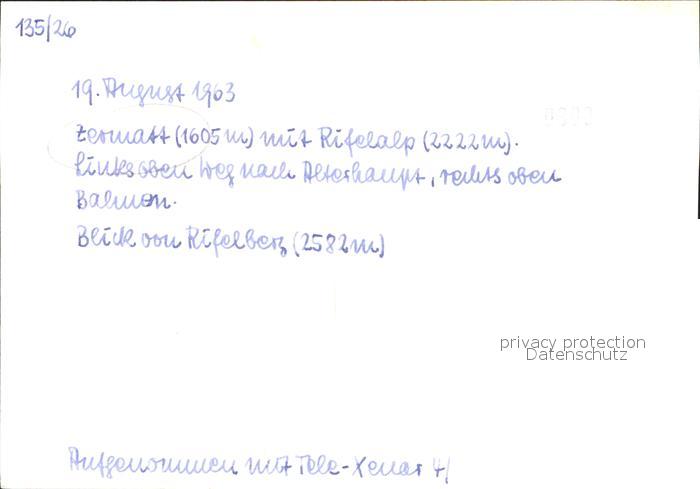 135/26
19. August 1963
Zermatt (1605 m) mit Rifelalp (2222 m).
Links oben Weg nach Alterhaupt, rechts oben
Balmen.
Blick von Rifelberg (2582 m)
privacy protection
Datenschutz
Aufgenommen mit Tele-Xenar 4/